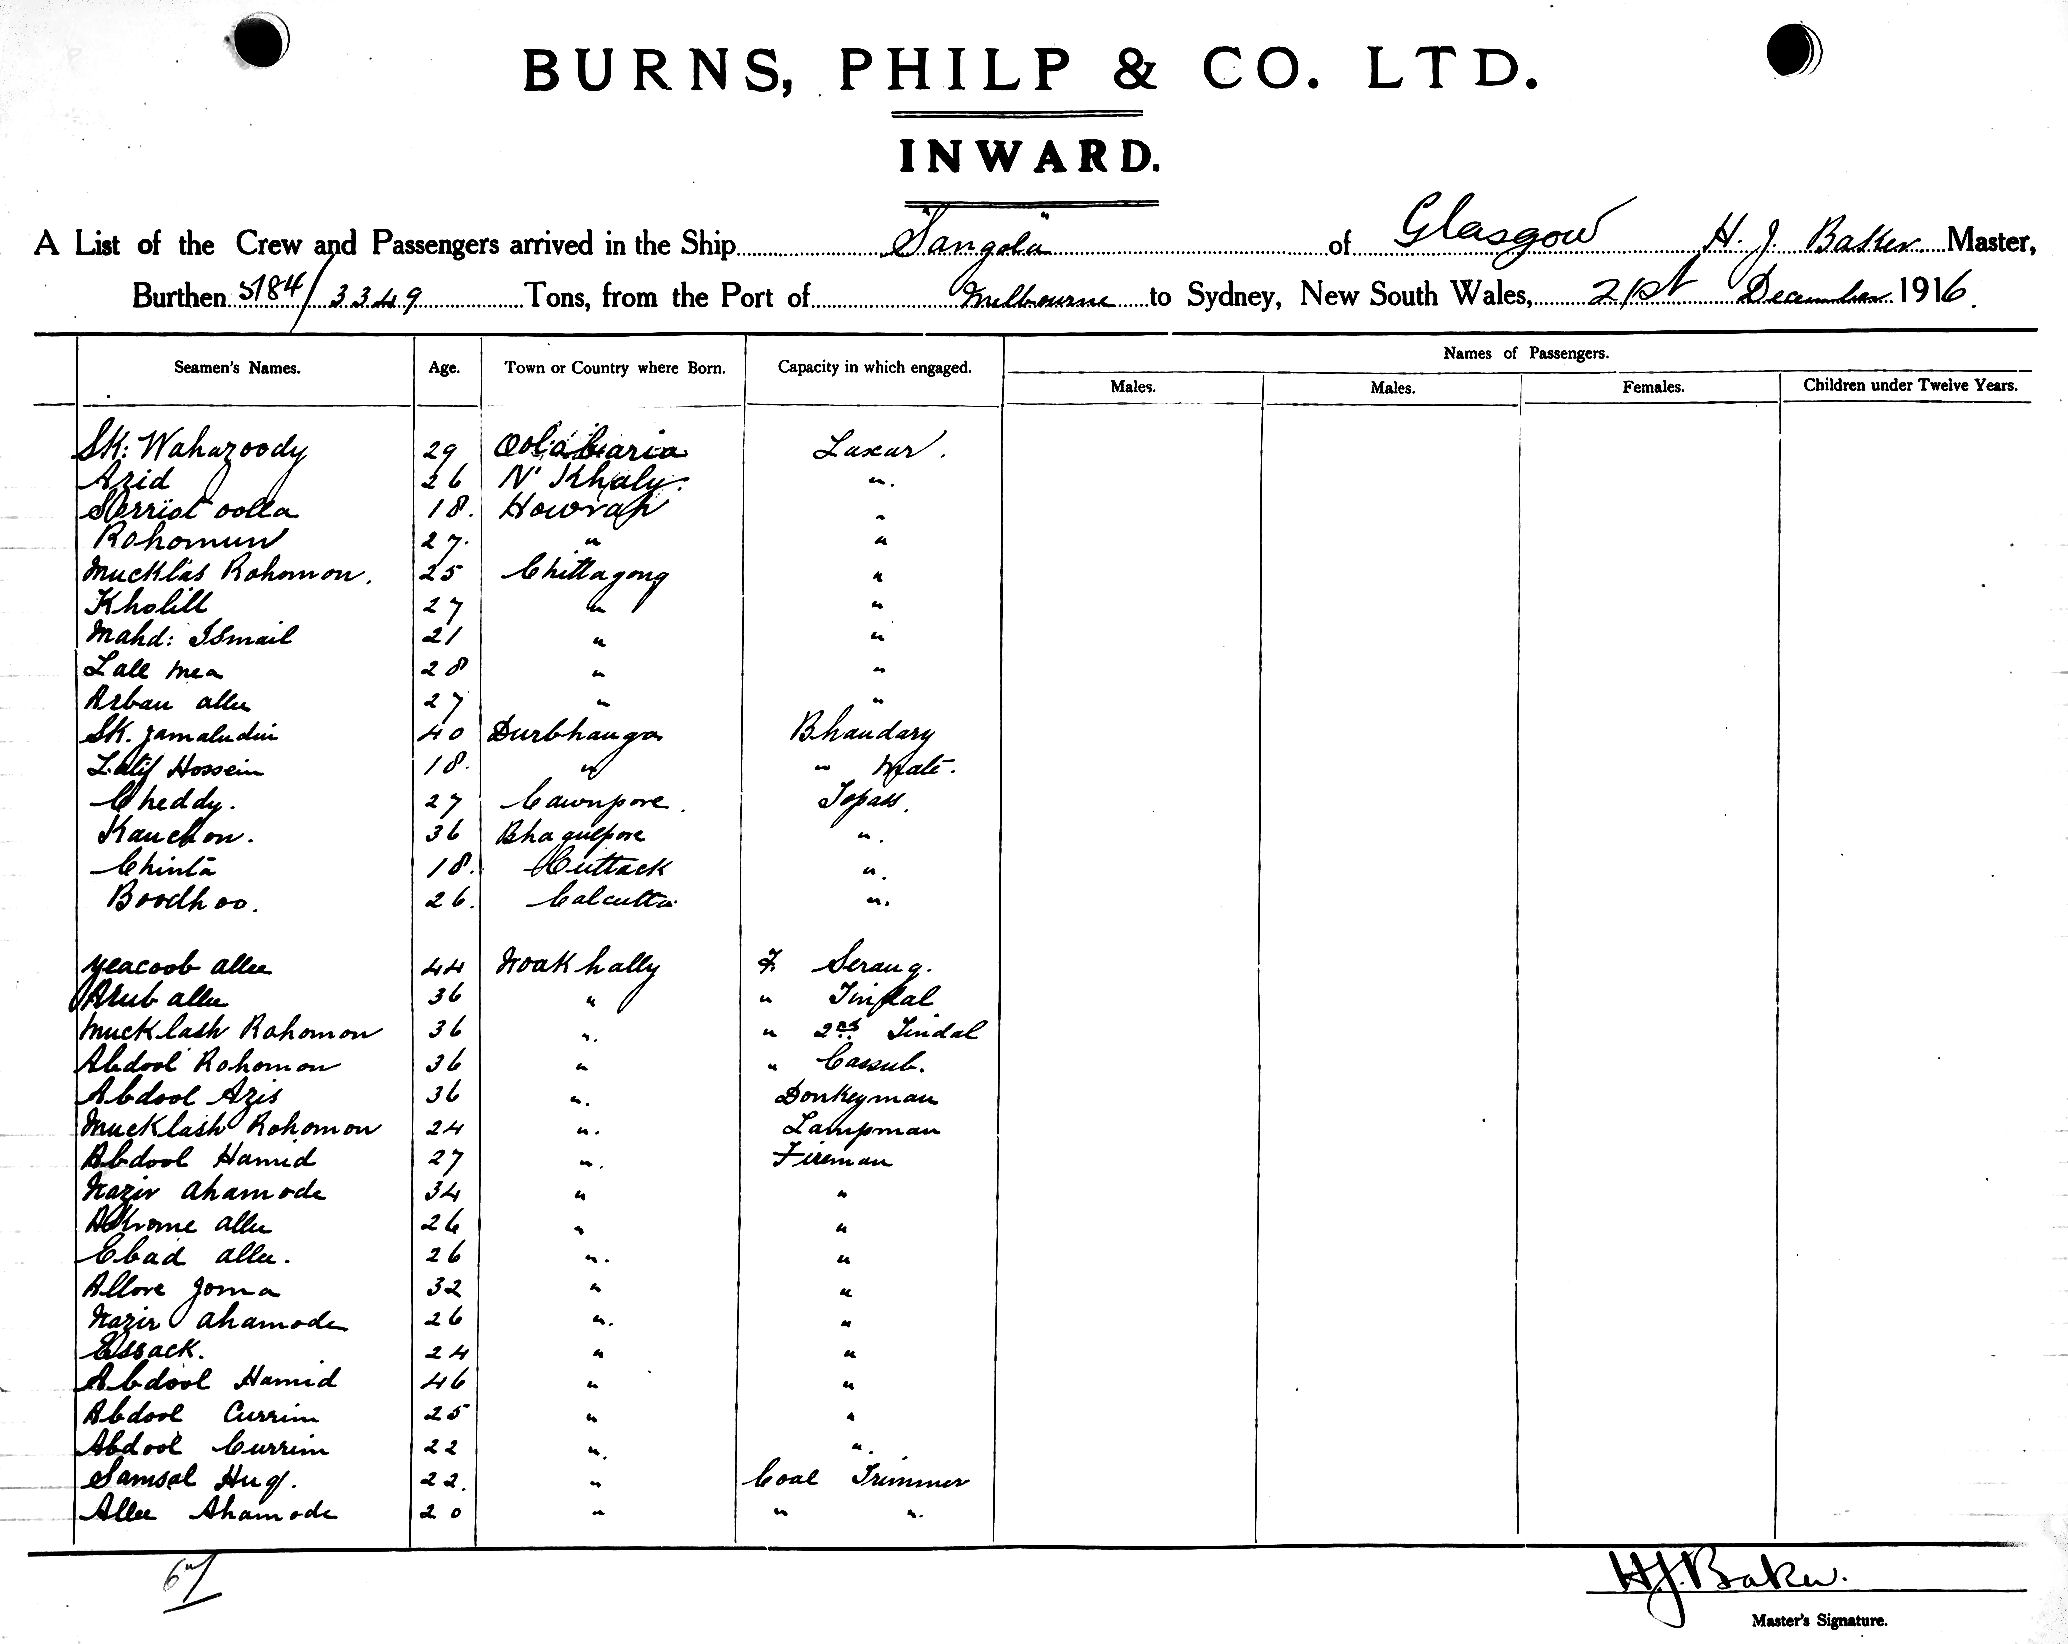 BURNS, PHILP & CO. LTD.
INWARD.
A List of the Crew and Passengers arrived in the Ship "Sangola" of Glasgow H. J. Baker Master,
Burthen 5184/3349 Tons, from the Port of Melbourne to Sydney, New South Wales, 21st December 1916.
Names of Passengers.
Seamen's Names. Age. Town or Country where Born. Capacity in which engaged. Males. Males. Females. Children under Twelve Years.
SK: Wahazoody 29 Oolabaria Lascar.
Azid 26 N' Khaly. " .
18. Howrah "
Rohomun 27. " "
Mucklas Rohomon. 25 Chittagong "
Kholill 27 " "
Mahd: Ismail 21 " "
Lall Mea 28 " "
Arban allee 27 " "
SK. Jamaludin 40 Durbhanga Bhandary
Latif Hossein 18. " " Mate.
Cheddy. 27 Cawnpore. Topass.
Kanchon. 36 Bhagulpore " .
Chinta 18. Cuttack " .
Boodhoo. 26. Calcutta " .
Yeacoob allee 44 Noakhally F Serang.
Arub allee 36 " " Tindal
Mucklash Rohomon 36 " . " 2nd Tindal
Abdool Rohomon 36 " " Cassub.
Abdool Azis 36 " . Donkeyman
Mucklash Rohomon 24 " . Lampman
Abdool Hamid 27 " . Fireman
Nazir Ahamode 34 " "
Akrome allee 26 " "
Ebad allee. 26 " . "
Allore Joma 32 " "
Nazir Ahamode 26 " . "
Essack. 24 " "
Abdool Hamid 46 " "
Abdool Currim 25 " "
Abdool Currim 22 " . " .
Samsol Huq. 22. " Coal Trimmer
Allee Ahamode 20 " " " .
H. J. Baker.
Master's Signature.